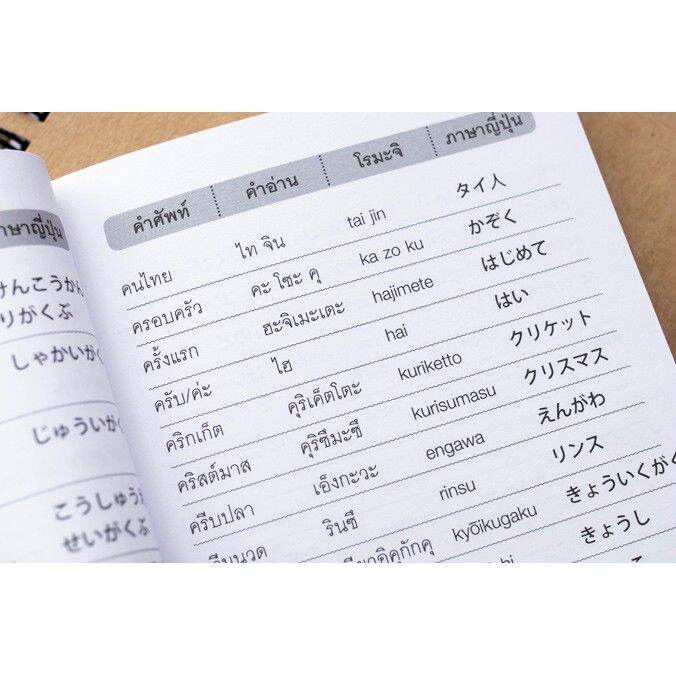 คำศัพท์ คำอ่าน โรมะจิ ภาษาญี่ปุ่น
คนไทย ไท จิน tai jin タイ人
ครอบครัว คะ โซะ คุ ka zo ku かぞく
ครั้งแรก ฮะจิเมะเตะ hajimete はじめて
ครับ/ค่ะ ไฮ hai はい
คริกเก็ต คุริเค็ตโตะ kuriketto クリケット
คริสต์มาส คุริซึมะซึ kurisumasu クリスマス
ครีบปลา เอ็งกะวะ engawa えんがわ
ครีมนวด รินซึ rinsu リンス
kyōikugaku きょういくがく
きょうし
けんこうかん
りがくぶ
しゃかいがく
じゅういがく
こうしゅう
せいがくぶ